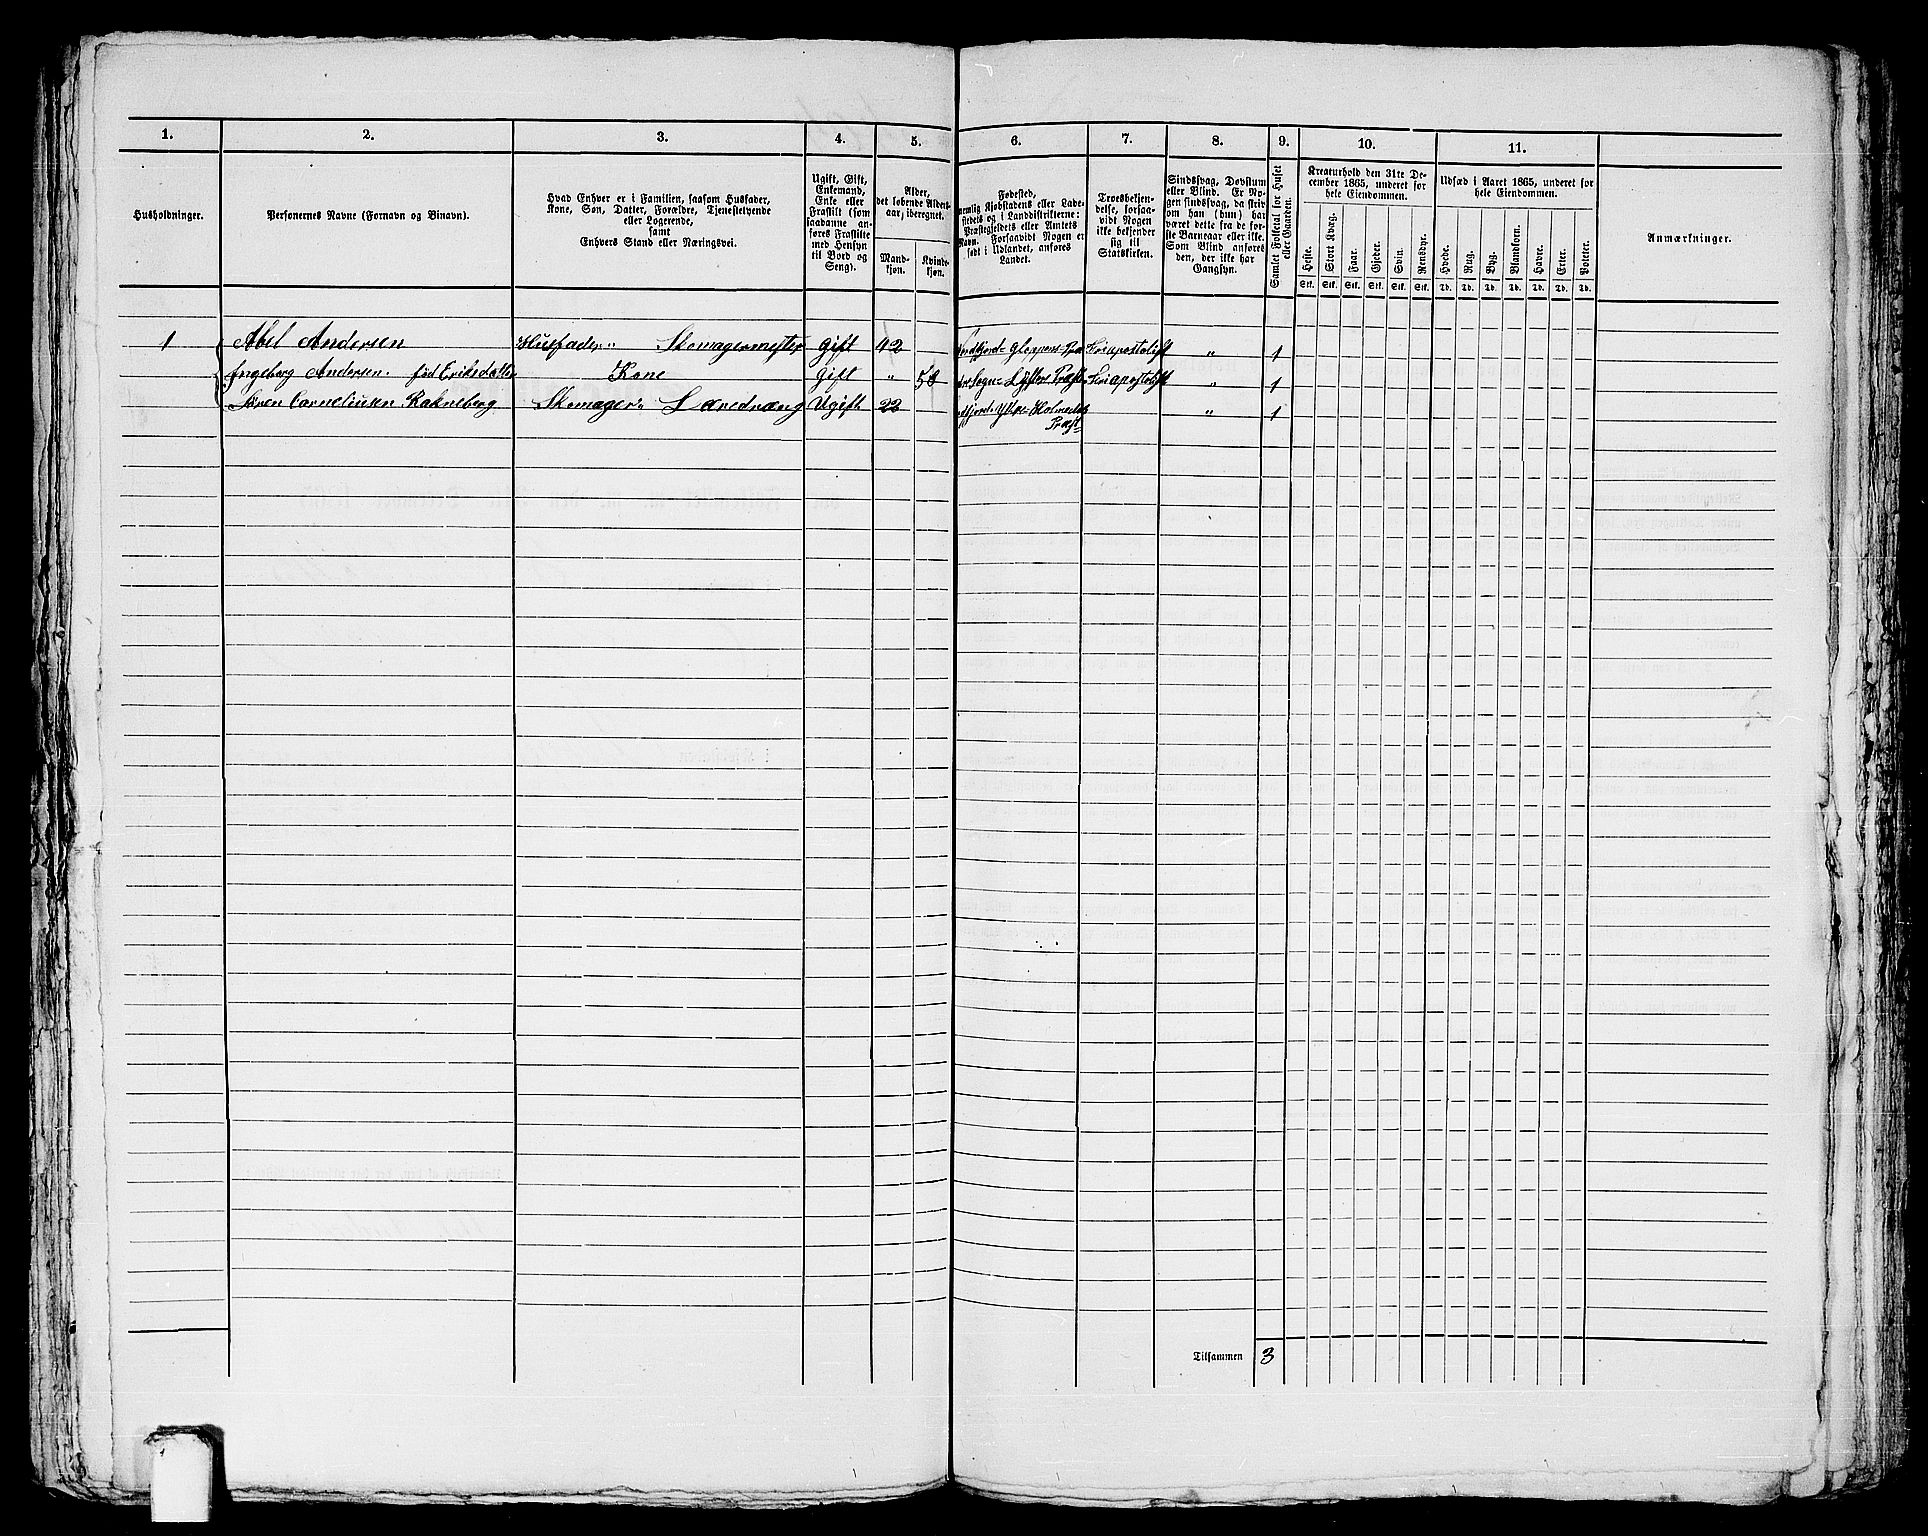 1. 2. 3. 4. 5. 6. 7. 8. 9. 10. 11.
Husholdninger.
Personernes Navne (Fornavn og Binavn).
Hvad Enhver er i Familien, saasom Husfader,
Kone, Søn, Datter, Forældre, Tjenestetyende
eller Logerende,
samt
Enhvers Stand eller Næringsvei.
Ugift, Gift,
Enkemand,
Enke eller
Fraskilt (som
saadanne an-
føres Fraskilte
med Hensyn
til Bord og
Seng).
Alder,
det løbende Alders-
aar, iberegnet.
Mand-
kjøn.
Kvinde-
kjøn.
Fødested,
nemlig Kjøbstadens eller Lade-
stedets og i Landdistrikterne:
Præstegjeldets eller Amtets
Navn. Forsaavidt Nogen er
født i Udlandet, anføres
Landet.
Troesbekjen-
delse, forsaa-
vidt Nogen
ikke bekjender
sig til
Statskirken.
Sindssvag, Døvstum
eller Blind. Er No-
gen sindssvag, da skriv
om han (hun) har
været dette fra de før-
ste Barneaar eller ikke.
Som Blind anføres
den, der ikke har
Gangsyn.
Samlet Folketal for Huset
eller Gaarden.
Kreaturhold den 31te De-
cember 1865, underet for
hele Eiendommen.
Heste. Stort Kvæg. Faar. Gjeder. Svin. Rensdyr.
Stk. Stk. Stk. Stk. Stk. Stk.
Udsæd i Aaret 1865, underet for
hele Eiendommen.
Hvede. Rug. Byg. Blandkorn. Havre. Erter. Poteter.
Td. Td. Td. Td. Td. Td. Td.
Anmærkninger.
1 Abel Andersen Husfader " Skomagermester Gift 42 Gloppens Præ Friapostolisk " 1
Ingeborg Andersen. fød Eriksdatter Kone Gift " 58 Sogn Lÿster Præst Friapostolisk " 1
Sören Corneliusen Rakneberg Skomager Læredræng Ugift 22 Ytre Holmedals " 1
Præst
Tilsammen 3